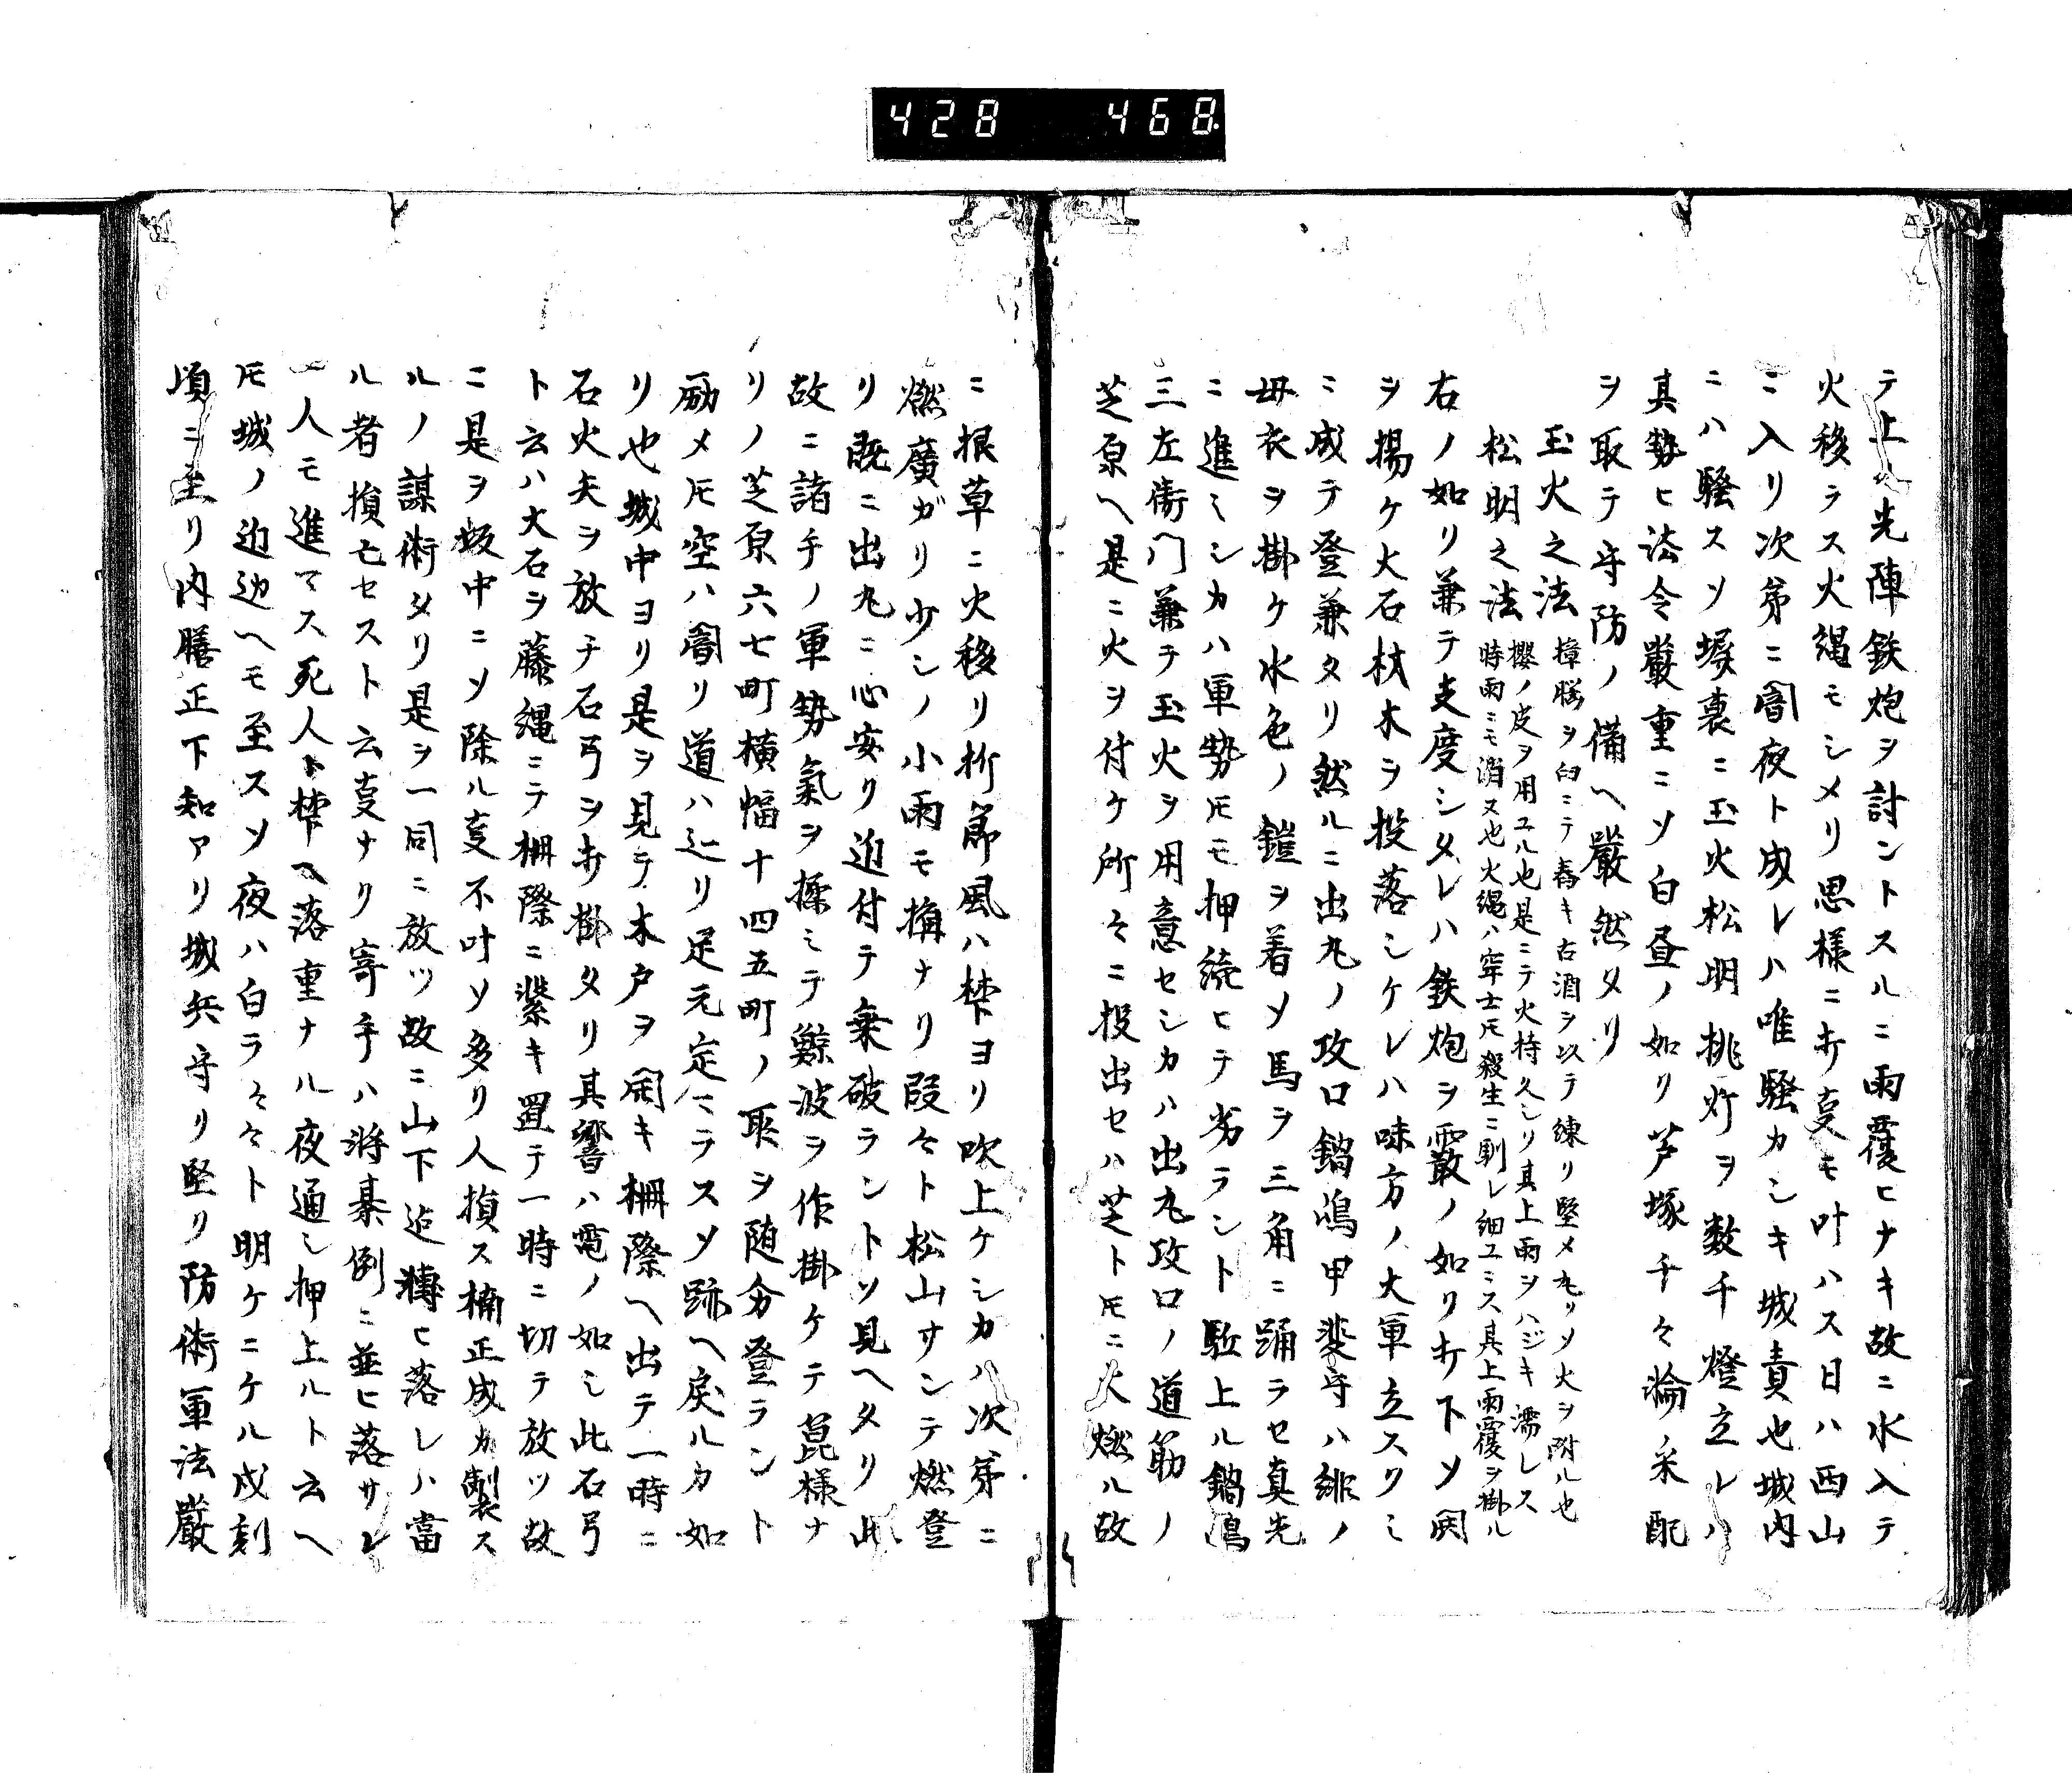 428 468
テ上ル先陣鉄炮ヲ討ントスルニ雨覆ヒナキ故ニ水入テ
火移ラス火縄モシメリ思様ニ打亊モ叶ハス日ハ西山
ニ入リ次第ニ闇夜ト成レハ唯騒カシキ城責也城内
ニハ騒スソ塀裏ニ玉火松明挑灯ヲ数千燈立レハ
其勢ヒ法令厳重ニソ白昼ノ如リ芦塚千々淪ノ采配
ヲ取テ守防ノ備ヘ厳然タリ
玉火之法 樟腦ヲ臼ニテ舂キ古酒ヲ以テ練リ堅メ丸リソ火ヲ附ル也
松明之法 櫻ノ皮ヲ用ユル也是ニテ火持久シリ其上雨ヲハジキ濡レス
時雨ニモ消ヌ也火縄ハ窂士𪜈殺生ニ馴レ細ユミス其上雨覆ヲ掛ル
右ノ如リ兼テ支度シタレハ鉄炮ヲ霰ノ如リ打下ソ閧
ヲ揚ケ大石材木ヲ投落シケレハ味方ノ大軍立スクミ
ニ成テ登兼タリ然ルニ出丸ノ攻口鍋嶋甲斐守ハ緋ノ
母衣ヲ掛ケ水色ノ鎧ヲ着ソ馬ヲ三角ニ踊ラセ真先
ニ進ミシカハ軍勢𪜈モ押続ヒテ劣ラシト駈上ル鍋嶋
三左衛門兼テ玉火ヲ用意セシカハ出丸攻口ノ道筋ノ
芝原ヘ是ニ火ヲ付ケ所々ニ投出セハ芝ト𪜈ニ火燃ル故
ニ根草ニ火移リ折節風ハ梺ヨリ吹上ケシカハ次第ニ
燃廣ガリ少シノ小雨モ構ナリ段々ト松山サンテ燃登
リ既ニ出丸ニ心安リ近付テ乗破ラントソ見ヘタリ此
故ニ諸手ノ軍勢氣ヲ揉ミテ鯨波ヲ作掛ケテ崑様ナ
リノ芝原六七町横幅十四五町ノ取ヲ随分登ラント
励メ𪜈空ハ闇リ道ハ辷リ足元定マラスソ跡ヘ戻ルカ如
リ也城中ヨリ是ヲ見テ木戸ヲ開キ柵際ヘ出テ一時ニ
石火矢ヲ放チ石弓ヲ打掛タリ其響ハ電ノ如シ此石弓
ト云ハ大石ヲ藤縄ニテ柵際ニ繋キ置テ一時ニ切テ放ツ故
ニ是ヲ坂中ニソ除ル亊不叶ソ多リ人損ス楠正成カ製ス
ルノ謀術タリ是ヲ一同ニ放ツ故ニ山下迠轉ヒ落レハ當
ル者損亡セスト云亊ナリ寄手ハ将棊倒ニ並ヒ落サレ
一人モ進マス死人ト梺ヘ落重ナル夜通シ押上ルト云ヘ
𪜈城ノ近辺ヘモ至スソ夜ハ白ラ々々ト明ケニケル戍刻
頃ニ至リ内膳正下知アリ城兵守リ堅リ防術軍法厳